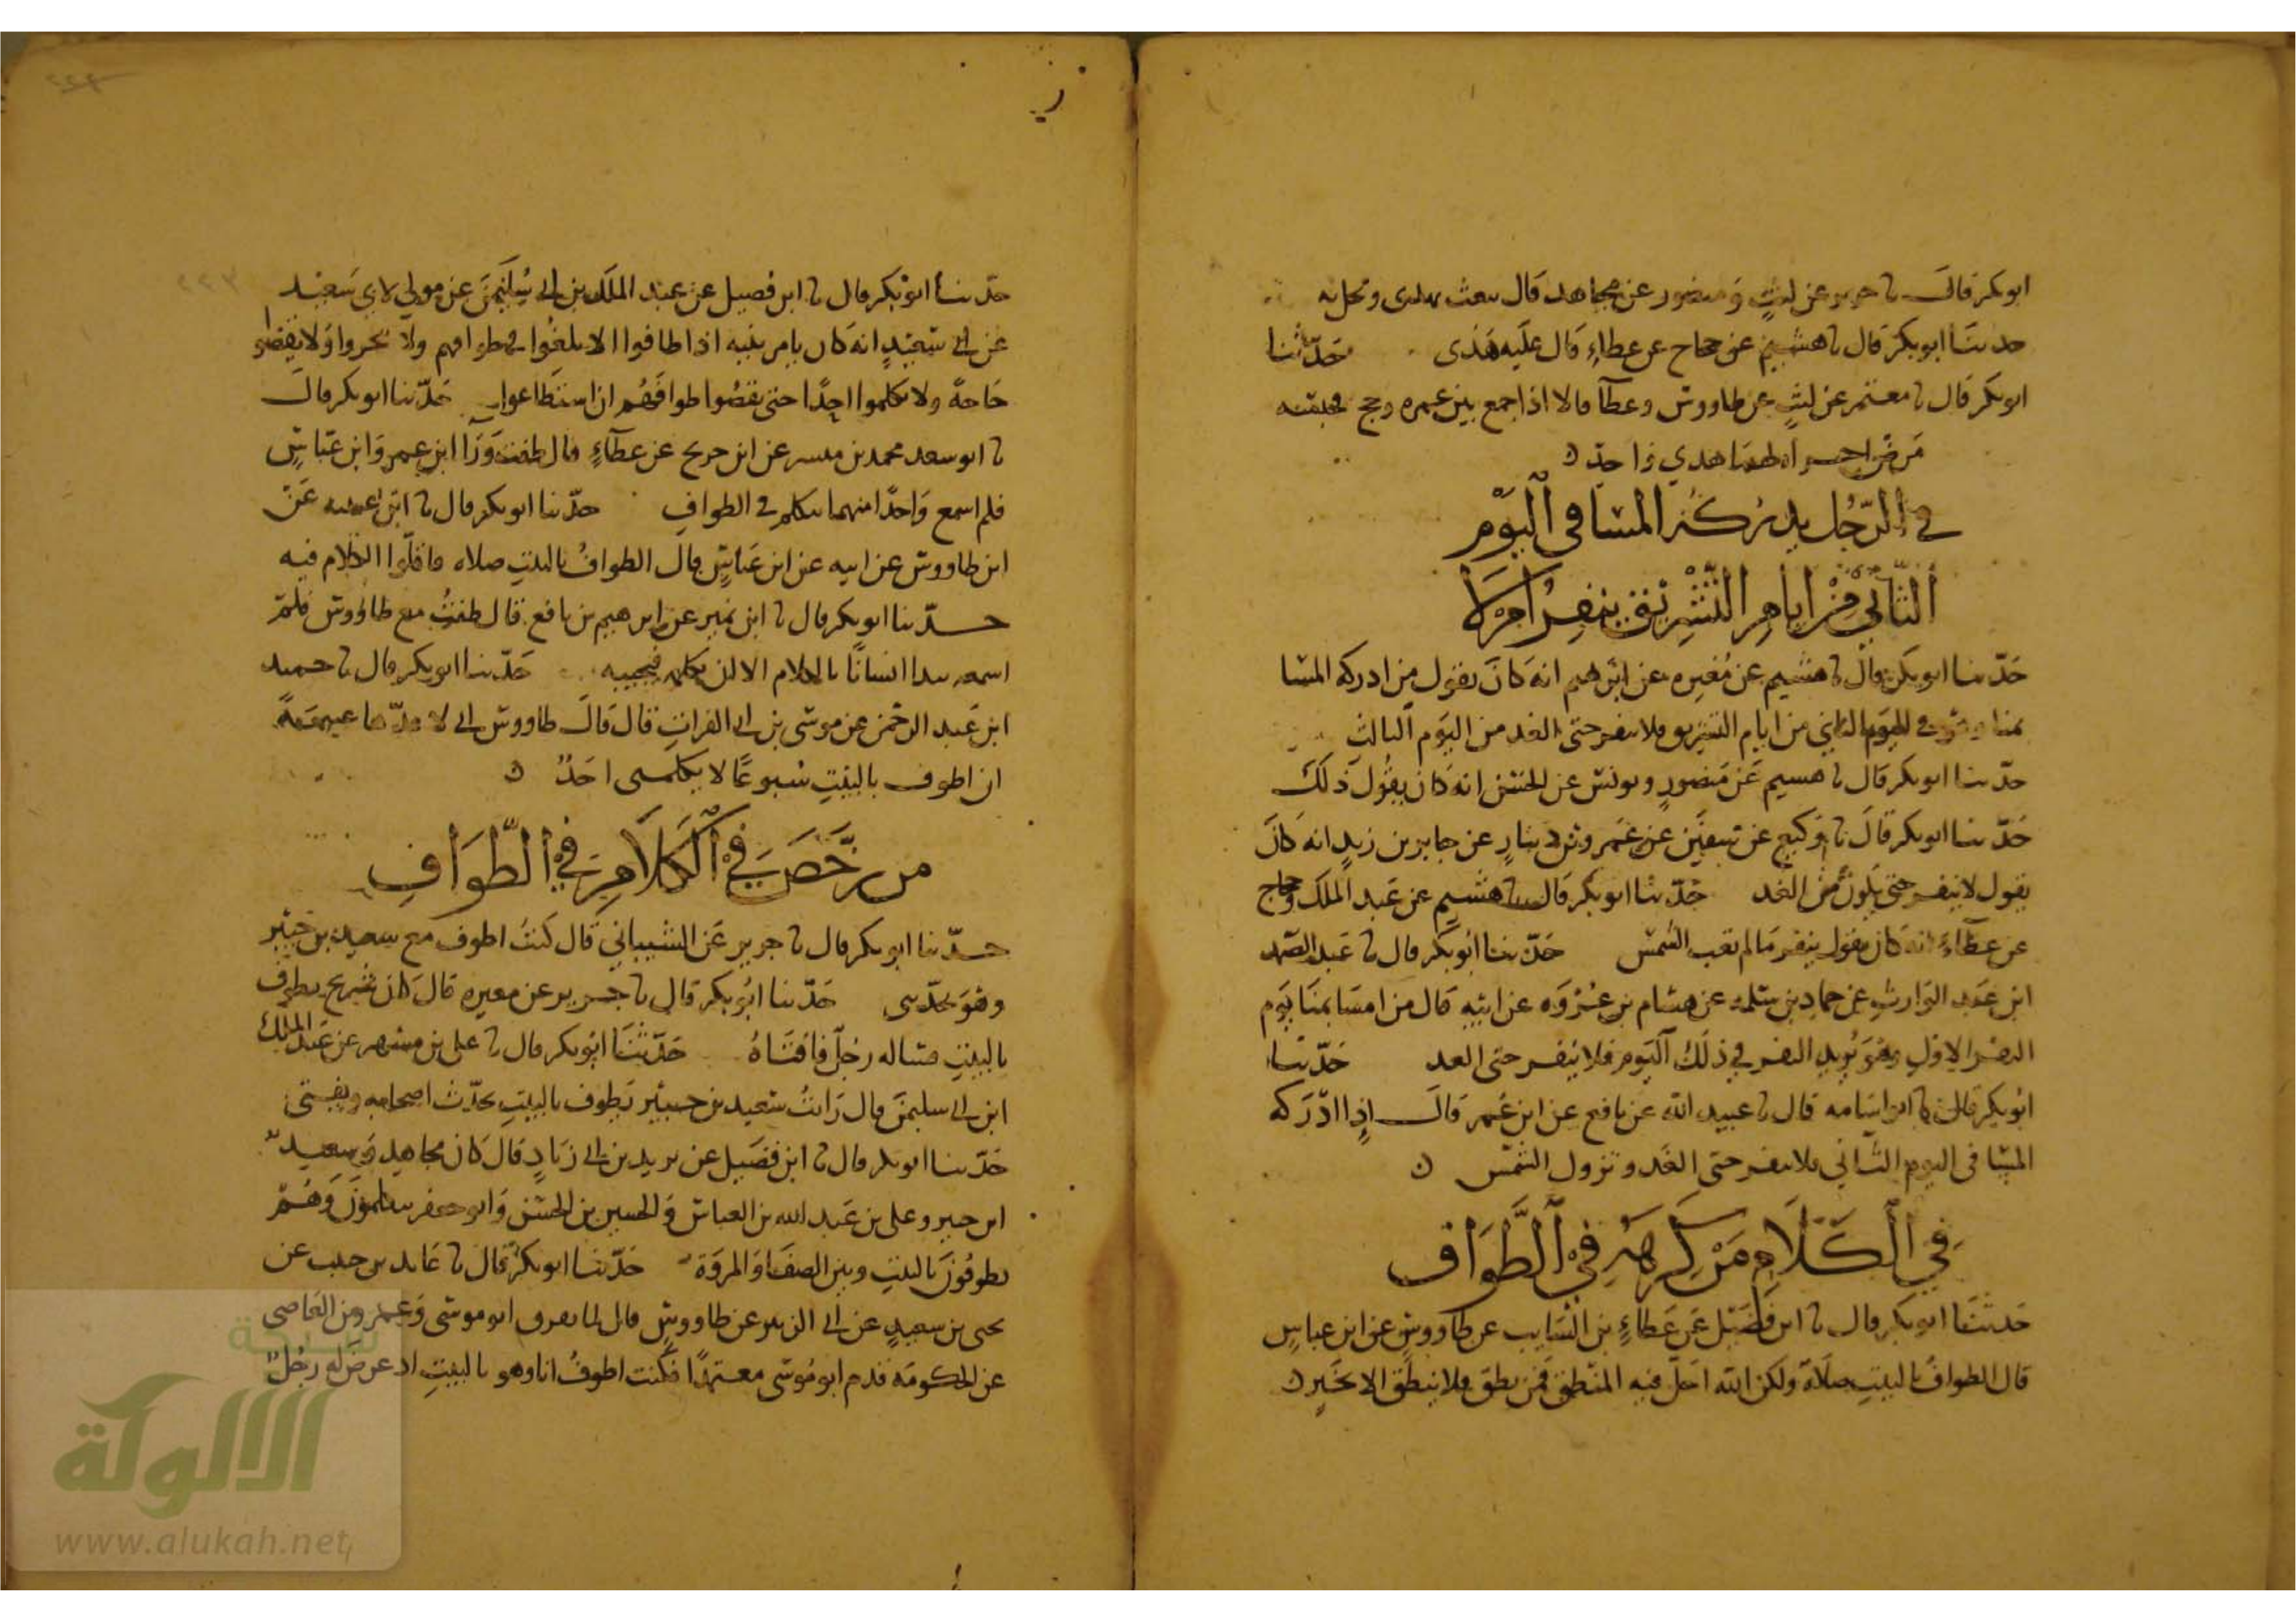 ابو بكر قال نا جرير عن ليث و منصور عن مجاهد قال يبعث بهدى ويحل به
حدثنا ابو بكر قال نا هشيم عن حجاج عن عطاء قال عليه هدى حدثنا
ابو بكر قال نا معتمر عن ليث عن طاووس وعطا قالا اذا جمع بين عمره وحج فحبسه
مرض اجزاه لهما هدي واحد
في الرجل يدركه المسا فى اليوم
الثاني من ايام التشريق ينفر ام لا
حدثنا ابو بكر قال نا هشيم عن مغيره عن ابرهيم انه كان يقول من ادركه المسا
بمنا في اليوم الثاني من ايام التشريق فلا ينفر حتى الغد من اليوم الثالث
حدثنا ابو بكر قال نا هشيم عن منصور ويونس عن الحسن انه كان يقول ذلك
حدثنا ابو بكر قال نا وكيع عن سفين عن عمرو بن دينار عن جابر بن زيد انه كان
يقول لا ينفر حتى يكون من الغد حدثنا ابو بكر قال نا هشيم عن عبد الملك وحجاج
عن عطاء انه كان يقول ينفر ما لم تغب الشمس حدثنا ابو بكر قال نا عبد الصمد
ابن عبد الوارث عن حماد بن سلمه عن هشام بن عروه عن ابيه قال من امسا بمنا يوم
النفر الاول وهو يريد النفر في ذلك اليوم فلا ينفر حتى الغد حدثنا
ابو بكر قال نا ابو اسامه قال نا عبيد الله عن نافع عن ابن عمر قال اذا ادركه
المسا فى اليوم الثاني فلا ينفر حتى الغد وتزول الشمس ن
في الكلام من كرهه في الطواف
حدثنا ابو بكر قال نا ابن فضيل عن عطاء بن السايب عن طاووس عن ابن عباس
قال الطواف بالبيت صلاة ولكن الله احل فيه المنطق فمن نطق فلا ينطق الا بخير ن
حدثنا ابو بكر قال نا ابن فضيل عن عبد الملك بن ابي سليمن عن مولي لابي سعيد
عن ابي سعيد انه كان يامر بنيه اذا طافوا الا يلغوا في طوافهم ولا يهجروا ولا يقضوا
حاجة ولا يكلموا احدا حتى يقضوا طوافهم ان استطاعوا حدثنا ابو بكر قال
نا ابو سعد محمد بن ميسر عن ابن جريج عن عطاء قال طفت ورا ابن عمر وابن عباس
فلم اسمع واحدا منهما يتكلم في الطواف حدثنا ابو بكر قال نا ابن عيينه عن
ابن طاووس عن ابيه عن ابن عباس قال الطواف بالبيت صلاه فاقلوا الكلام فيه
حدثنا ابو بكر قال نا ابن نمير عن ابرهيم بن نافع قال طفت مع طاووس فلم
اسمعه يبدا انسانا بالكلام الا ان يكلمه فيجيبه حدثنا ابو بكر قال نا حميد
ابن عبد الرحمن عن موسى بن ابي الفرات قال قال طاووس اني لا عدها غنيمة
ان اطوف بالبيت سبوعا لا يكلمنى احد ن
من رخص في الكلام في الطواف
حدثنا ابو بكر قال نا جرير عن الشيباني قال كنت اطوف مع سعيد بن جبير
وهو يحدثنى حدثنا ابو بكر قال نا جرير عن مغيره قال كان شريح يطوف
بالبيت فساله رجل فافتاه حدثنا ابو بكر قال نا على بن مسهر عن عبد الملك
ابن ابي سليمن قال رايت سعيد بن جبير يطوف بالبيت يحدث اصحابه ويفتى
حدثنا ابو بكر قال نا ابن فضيل عن يزيد بن ابي زياد قال كان مجاهد وسعيد
ابن جبير وعلى بن عبد الله بن العباس والحسين بن الحسن وابو جعفر يتكلمون وهم
يطوفون بالبيت وبين الصفا والمروة حدثنا ابو بكر قال نا عايد بن حبيب عن
يحى بن سعيد عن ابي الزبير عن طاووس قال لما تفرق ابو موسى وعمرو بن العاصى
عن الحكومة قدم ابو موسى معتمرا فكنت اطوف انا وهو بالبيت اذ عرض له رجل
شبكة
الألوكة
www.alukah.net